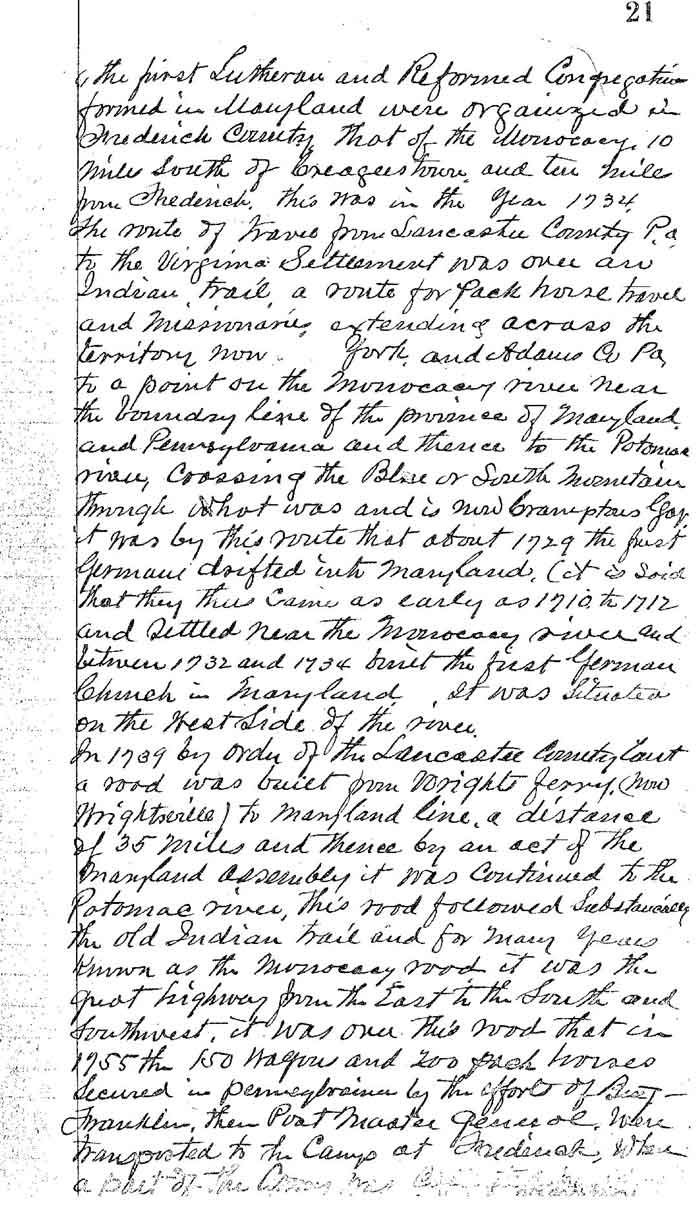 21
the first Lutheran and Reformed Congregation
formed in Maryland were organized in
Frederick County, that of the Monocacy, 10
miles South of Creagerstown and ten mile
from Frederick. this was in the Year 1734
the route of travel from Lancaster County P.a.
to the Virginia Settlement was over an
Indian trail, a route for pack horse travel
and Missionaries extending across the
territory now York, and Adams Co Pa,
to a point on the Monocacy river near
the boundry line of the province of Maryland,
and Pennsylvania and thence to the Potomac
river, Crossing the Blue or South Mountain
through what was and is now Cramptons Gap,
it was by this route that about 1729 the first
Germans drifted into Maryland, (it is said
that they thus came as early as 1710 to 1712
and Settled near the Monocacy river and
between 1732 and 1734 built the first German
Church in Maryland. It was Situated
on the West Side of the river.
In 1739 by order of the Lancaster County Court
a road was built from Wrights ferry, (now
Wrightsville) to Maryland line, a distance
of 35 miles and thence by an act of the
Maryland assembly it was continued to the
Potomac river, this road followed Substancially
the old Indian trail and for many years
known as the Monocacy road it was the
great highway from the East to the South and
Southwest, it was over this road that in
1755 the 150 wagons and 200 pack horses
Secured in pennsylvania by the efforts of Benj-
Franklin, then Post Master general, were
transported to the Camp at Frederick, where
a part of the Army was